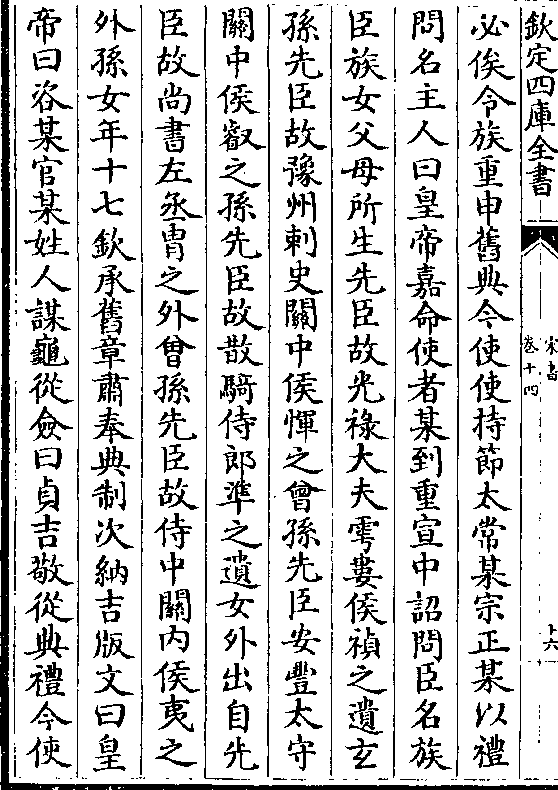 欽定四庫全書
宋書
卷十四
十六
必俟令族重申舊典今使使持節太常某宗正某以禮
問名主人曰皇帝嘉命使者某到重宣中詔問臣名族
臣族女父母所生先臣故光祿大夫雩婁侯禎之遺玄
孫先臣故豫州刺史關中侯惲之曾孫先臣安豐太守
關中侯叡之孫先臣故散騎侍郎準之遺女外出自先
臣故尚書左丞胄之外曾孫先臣故侍中關內侯夷之
外孫女年十七欽承舊章肅奉典制次納吉版文曰皇
帝曰咨某官某姓人謀龜從僉曰貞吉敬從典禮今使